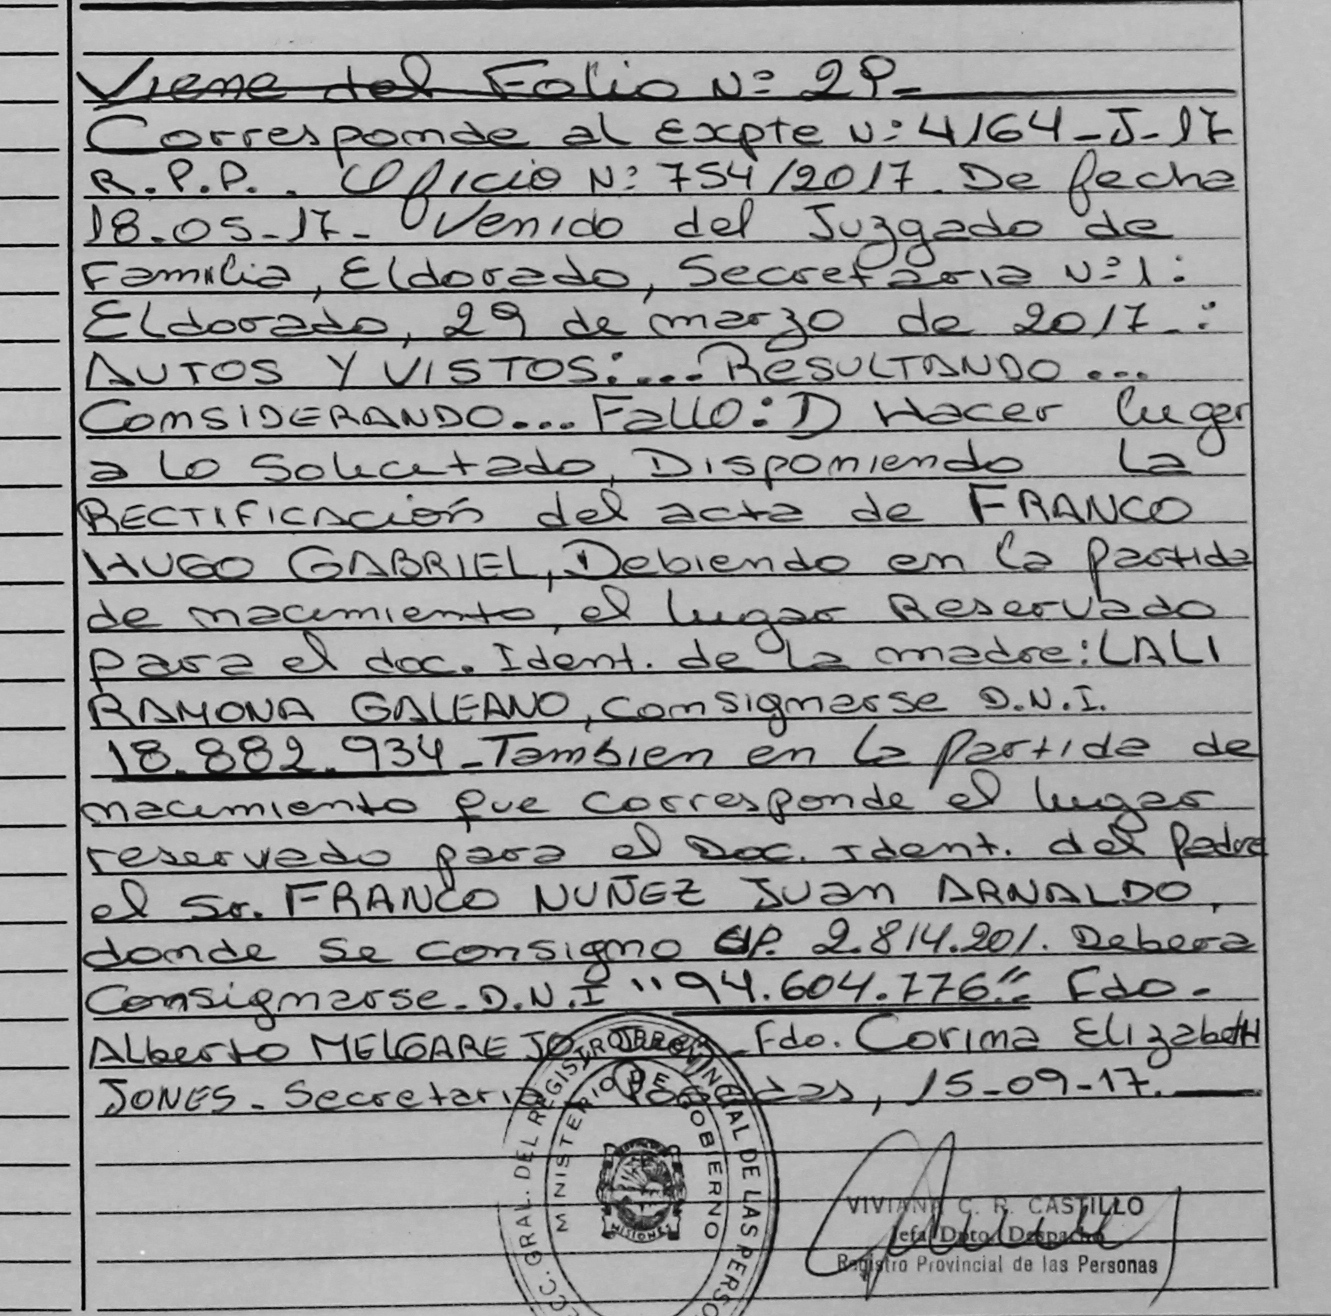 Viene del Folio Nº 29-
Corresponde al Expte Nº 4164-J-17
R.P.P.. Oficio Nº 754/2017. De fecha
18-05-17- Venido del Juzgado de
Familia, Eldorado, Secretaria Nº 1:
Eldorado, 29 de marzo de 2017-:
AUTOS Y VISTOS:... RESULTANDO...
CONSIDERANDO... Fallo: I) Hacer lugar
a lo Solicitado, Disponiendo la
RECTIFICACIóN del acta de FRANCO
HUGO GABRIEL, Debiendo en la partida
de nacimiento, el lugar Reservado
para el doc. Ident. de la madre: LALI
RAMONA GALEANO, consignarse D.N.I.
18.882.934-Tambien en la partida de
nacimiento que corresponde el lugar
reservado para el Doc. Ident. del Padre
el Sr. FRANCO NUÑEZ Juan ARNALDO,
donde se consigno 2.814.201. Debera
Consignarse-D.N.I "94.604.776" Fdo-
Alberto MELGAREJO -Fdo. Corina Elizabeth
JONES-Secretaria Posadas, 15-09-17.
CC. GRAL. DEL REGISTRO PROVINCIAL DE LAS PERSO
MINISTERIO DE GOBIERNO
MISIONES
VIVIANA C. R. CASTILLO
Jefa Dpto. Despacho
Registro Provincial de las Personas